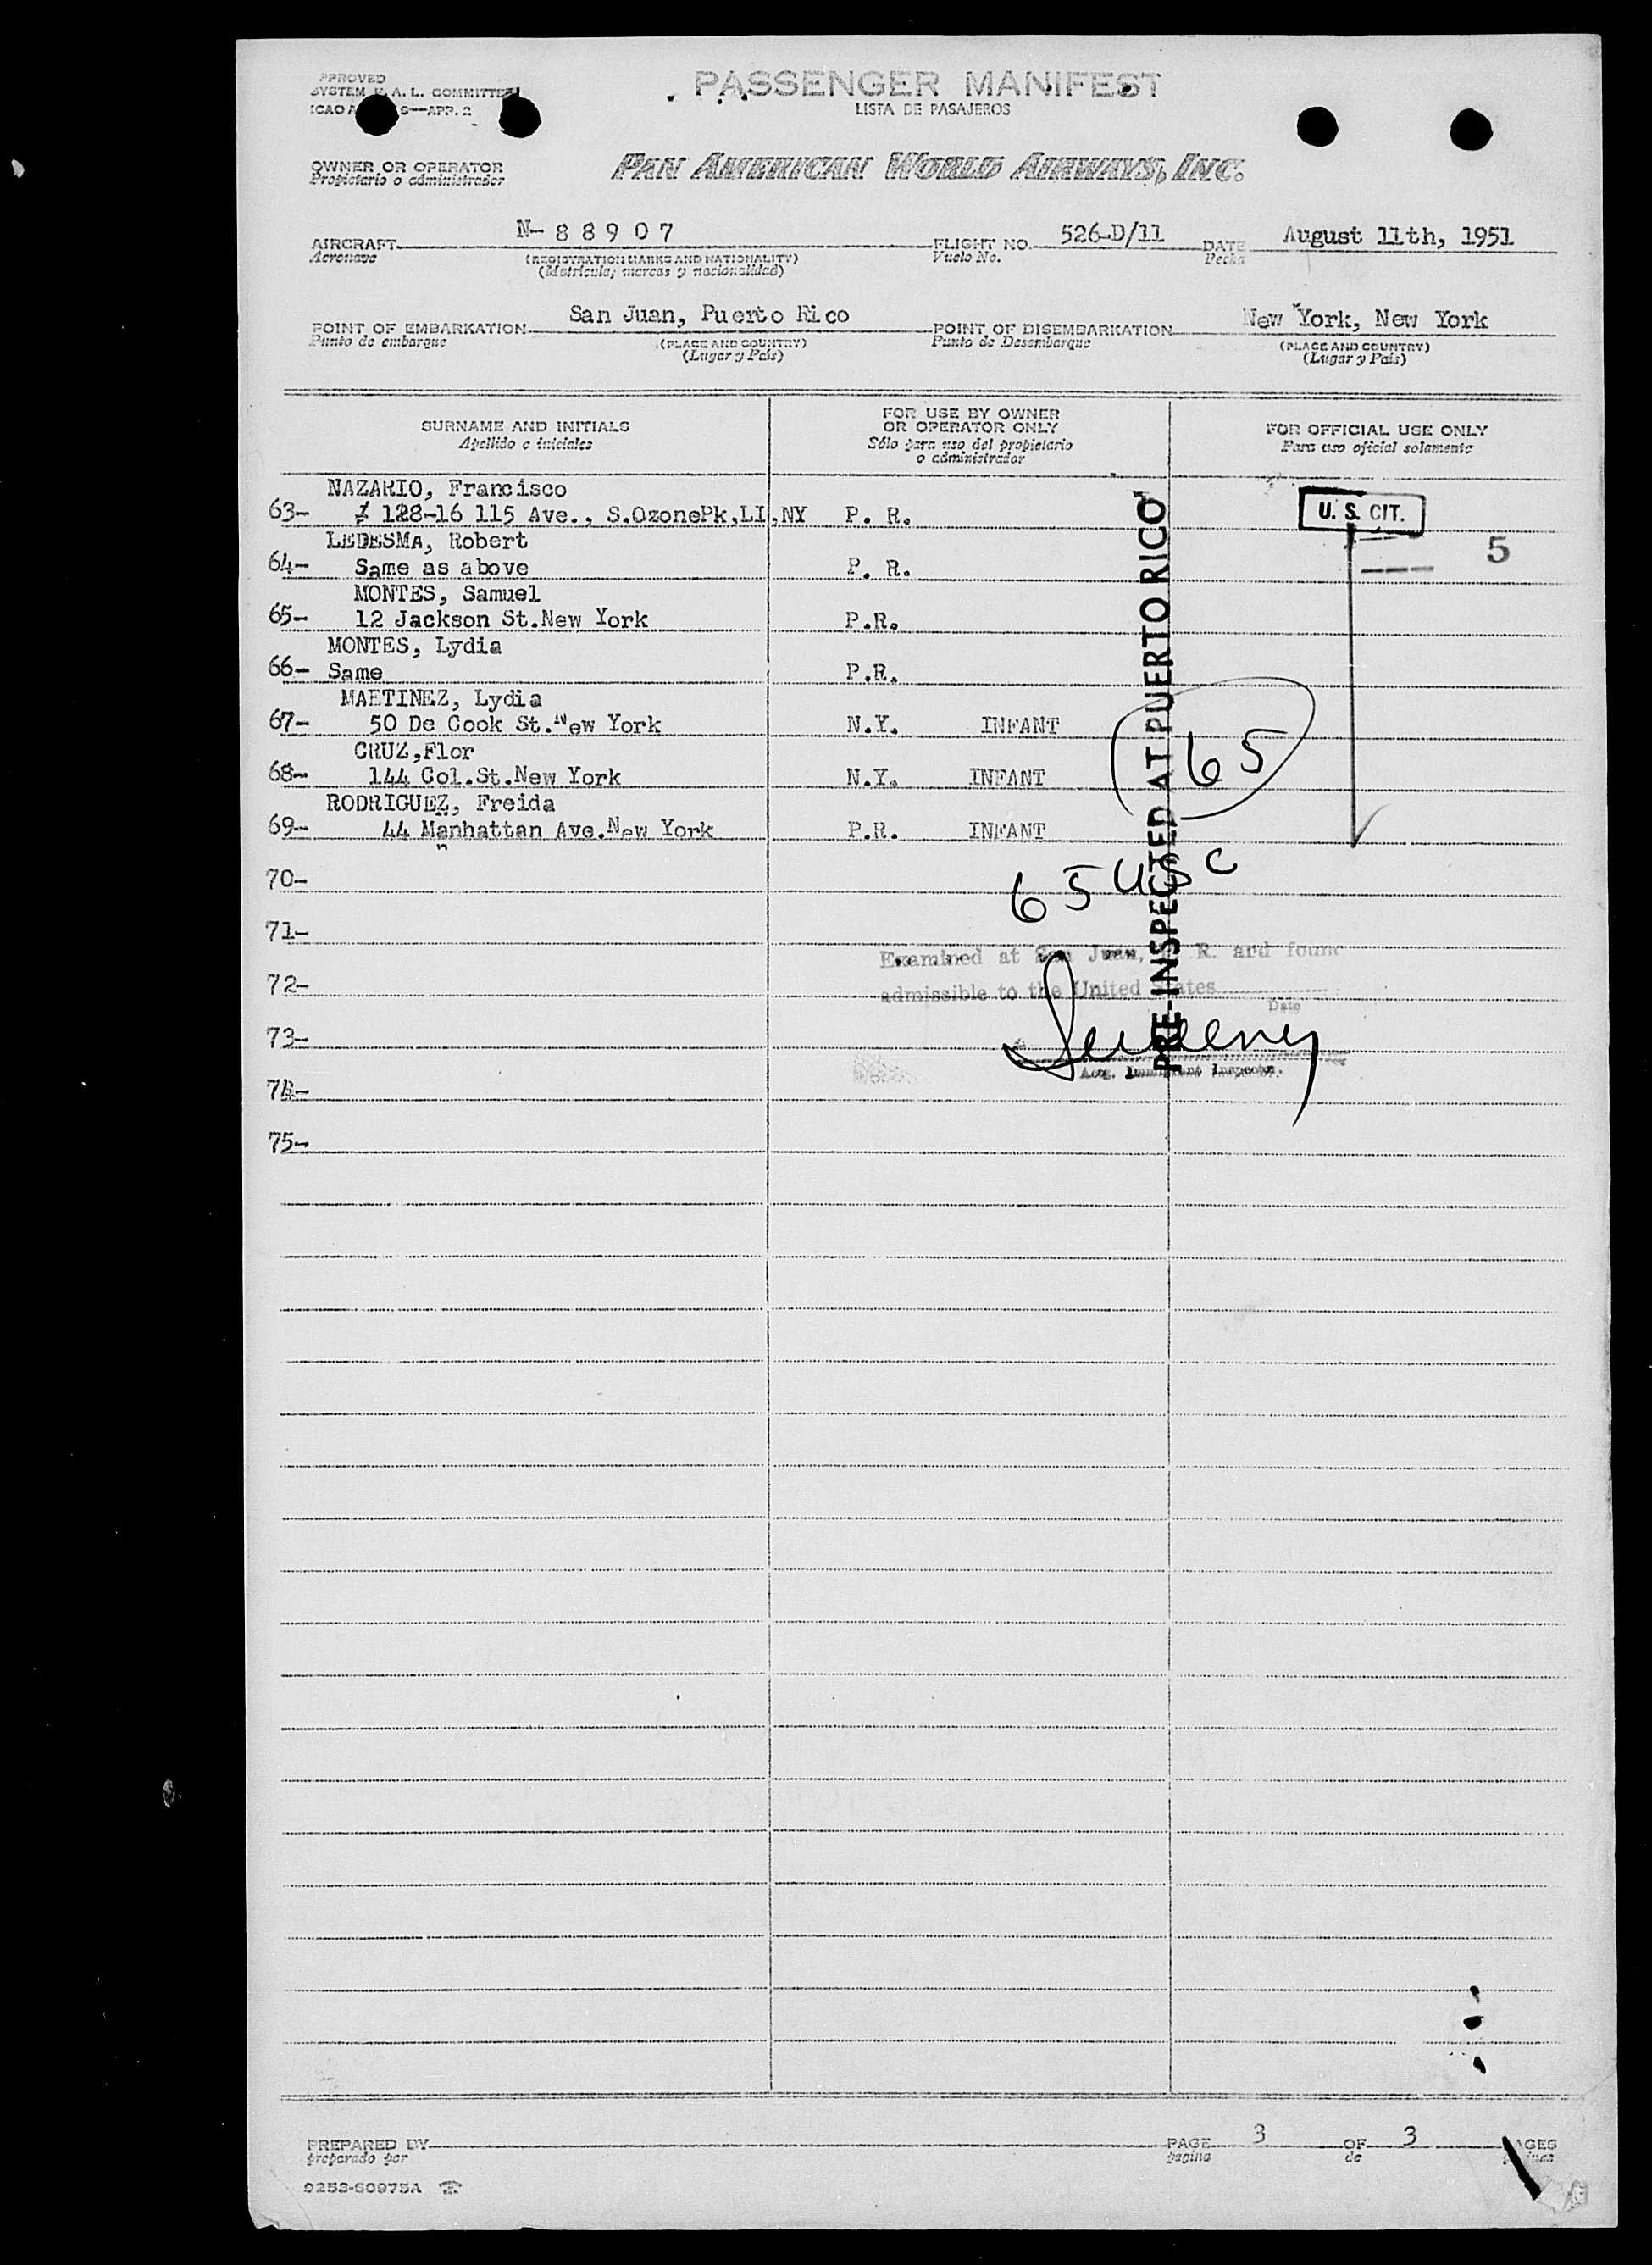 PPROVED
SYSTEM F. A. L. COMMITTEE
ICAO A 9—APP. 2
PASSENGER MANIFEST
LISTA DE PASAJEROS
OWNER OR OPERATOR
Propietario o administrador
PAN AMERICAN WORLD AIRWAYS, INC.
AIRCRAFT N-88907 FLIGHT NO. 526-D/11 DATE August 11th, 1951
Aeronave (REGISTRATION MARKS AND NATIONALITY) Vuelo No. Fecha
(Matrícula, marcas y nacionalidad)
POINT OF EMBARKATION San Juan, Puerto Rico POINT OF DISEMBARKATION New York, New York
Punto de embarque (PLACE AND COUNTRY) Punto de Desembarque (PLACE AND COUNTRY)
(Lugar y País) (Lugar y País)
SURNAME AND INITIALS
Apellido e iniciales
FOR USE BY OWNER
OR OPERATOR ONLY
Sólo para uso del propietario
o administrador
FOR OFFICIAL USE ONLY
Para uso oficial solamente
NAZARIO, Francisco
63- 128-16 115 Ave., S.OzonePk,LI,NY P. R. U. S. CIT.
LEDESMA, Robert
64- Same as above P. R. 5
MONTES, Samuel
65- 12 Jackson St.New York P.R.
MONTES, Lydia
66- Same P.R.
MARTINEZ, Lydia
67- 50 De Cook St.New York N.Y. INFANT
CRUZ,Flor
68- 144 Col.St.New York N.Y. INFANT
RODRIGUEZ, Freida
69- 44 Manhattan Ave.New York P.R. INFANT
65
PRE-INSPECTED AT PUERTO RICO
70-
65 USC
71-
Examined at San Juan, P. R. and found
72- admissible to the United States
Date
73-
Sweeney
Actg. Immigrant Inspector.
74-
75-
PREPARED BY PAGE 3 OF 3 PAGES
preparado por pagina de
0252-60975A